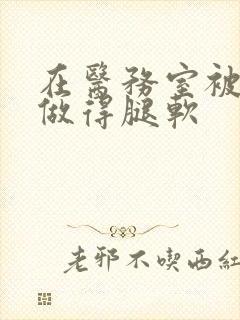 在醫務室被
做得腿軟
老邪不喫西紅